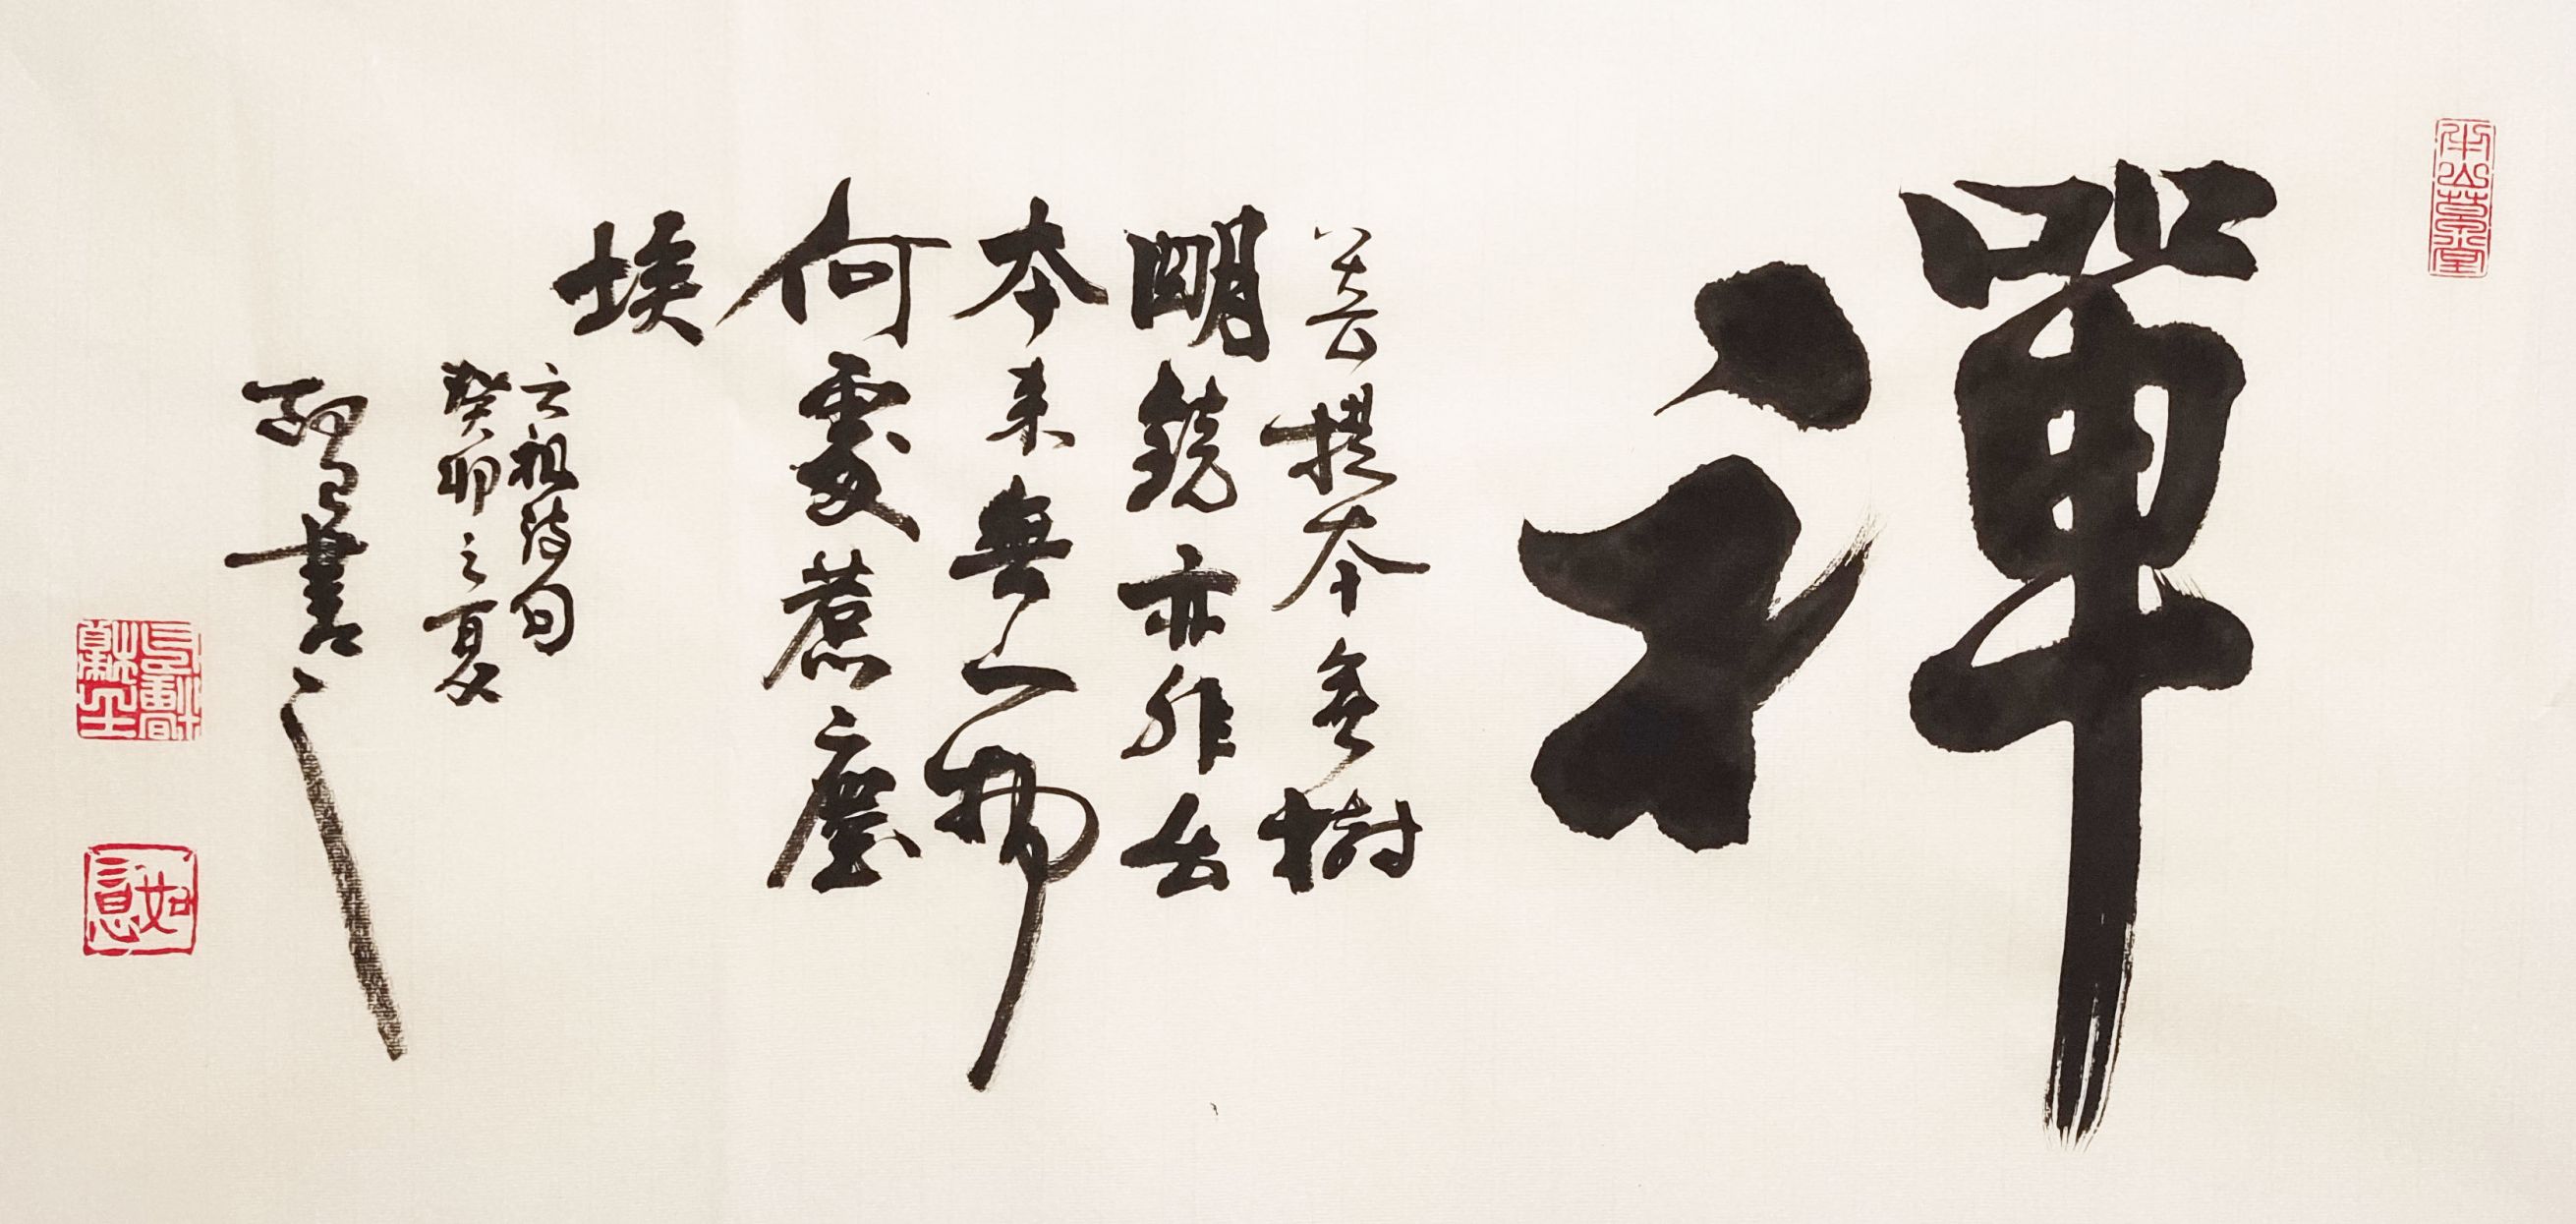 禪
菩提本無樹
明鏡亦非台
本來無一物
何處惹塵
埃
六祖詩句
癸卯之夏
書
如意